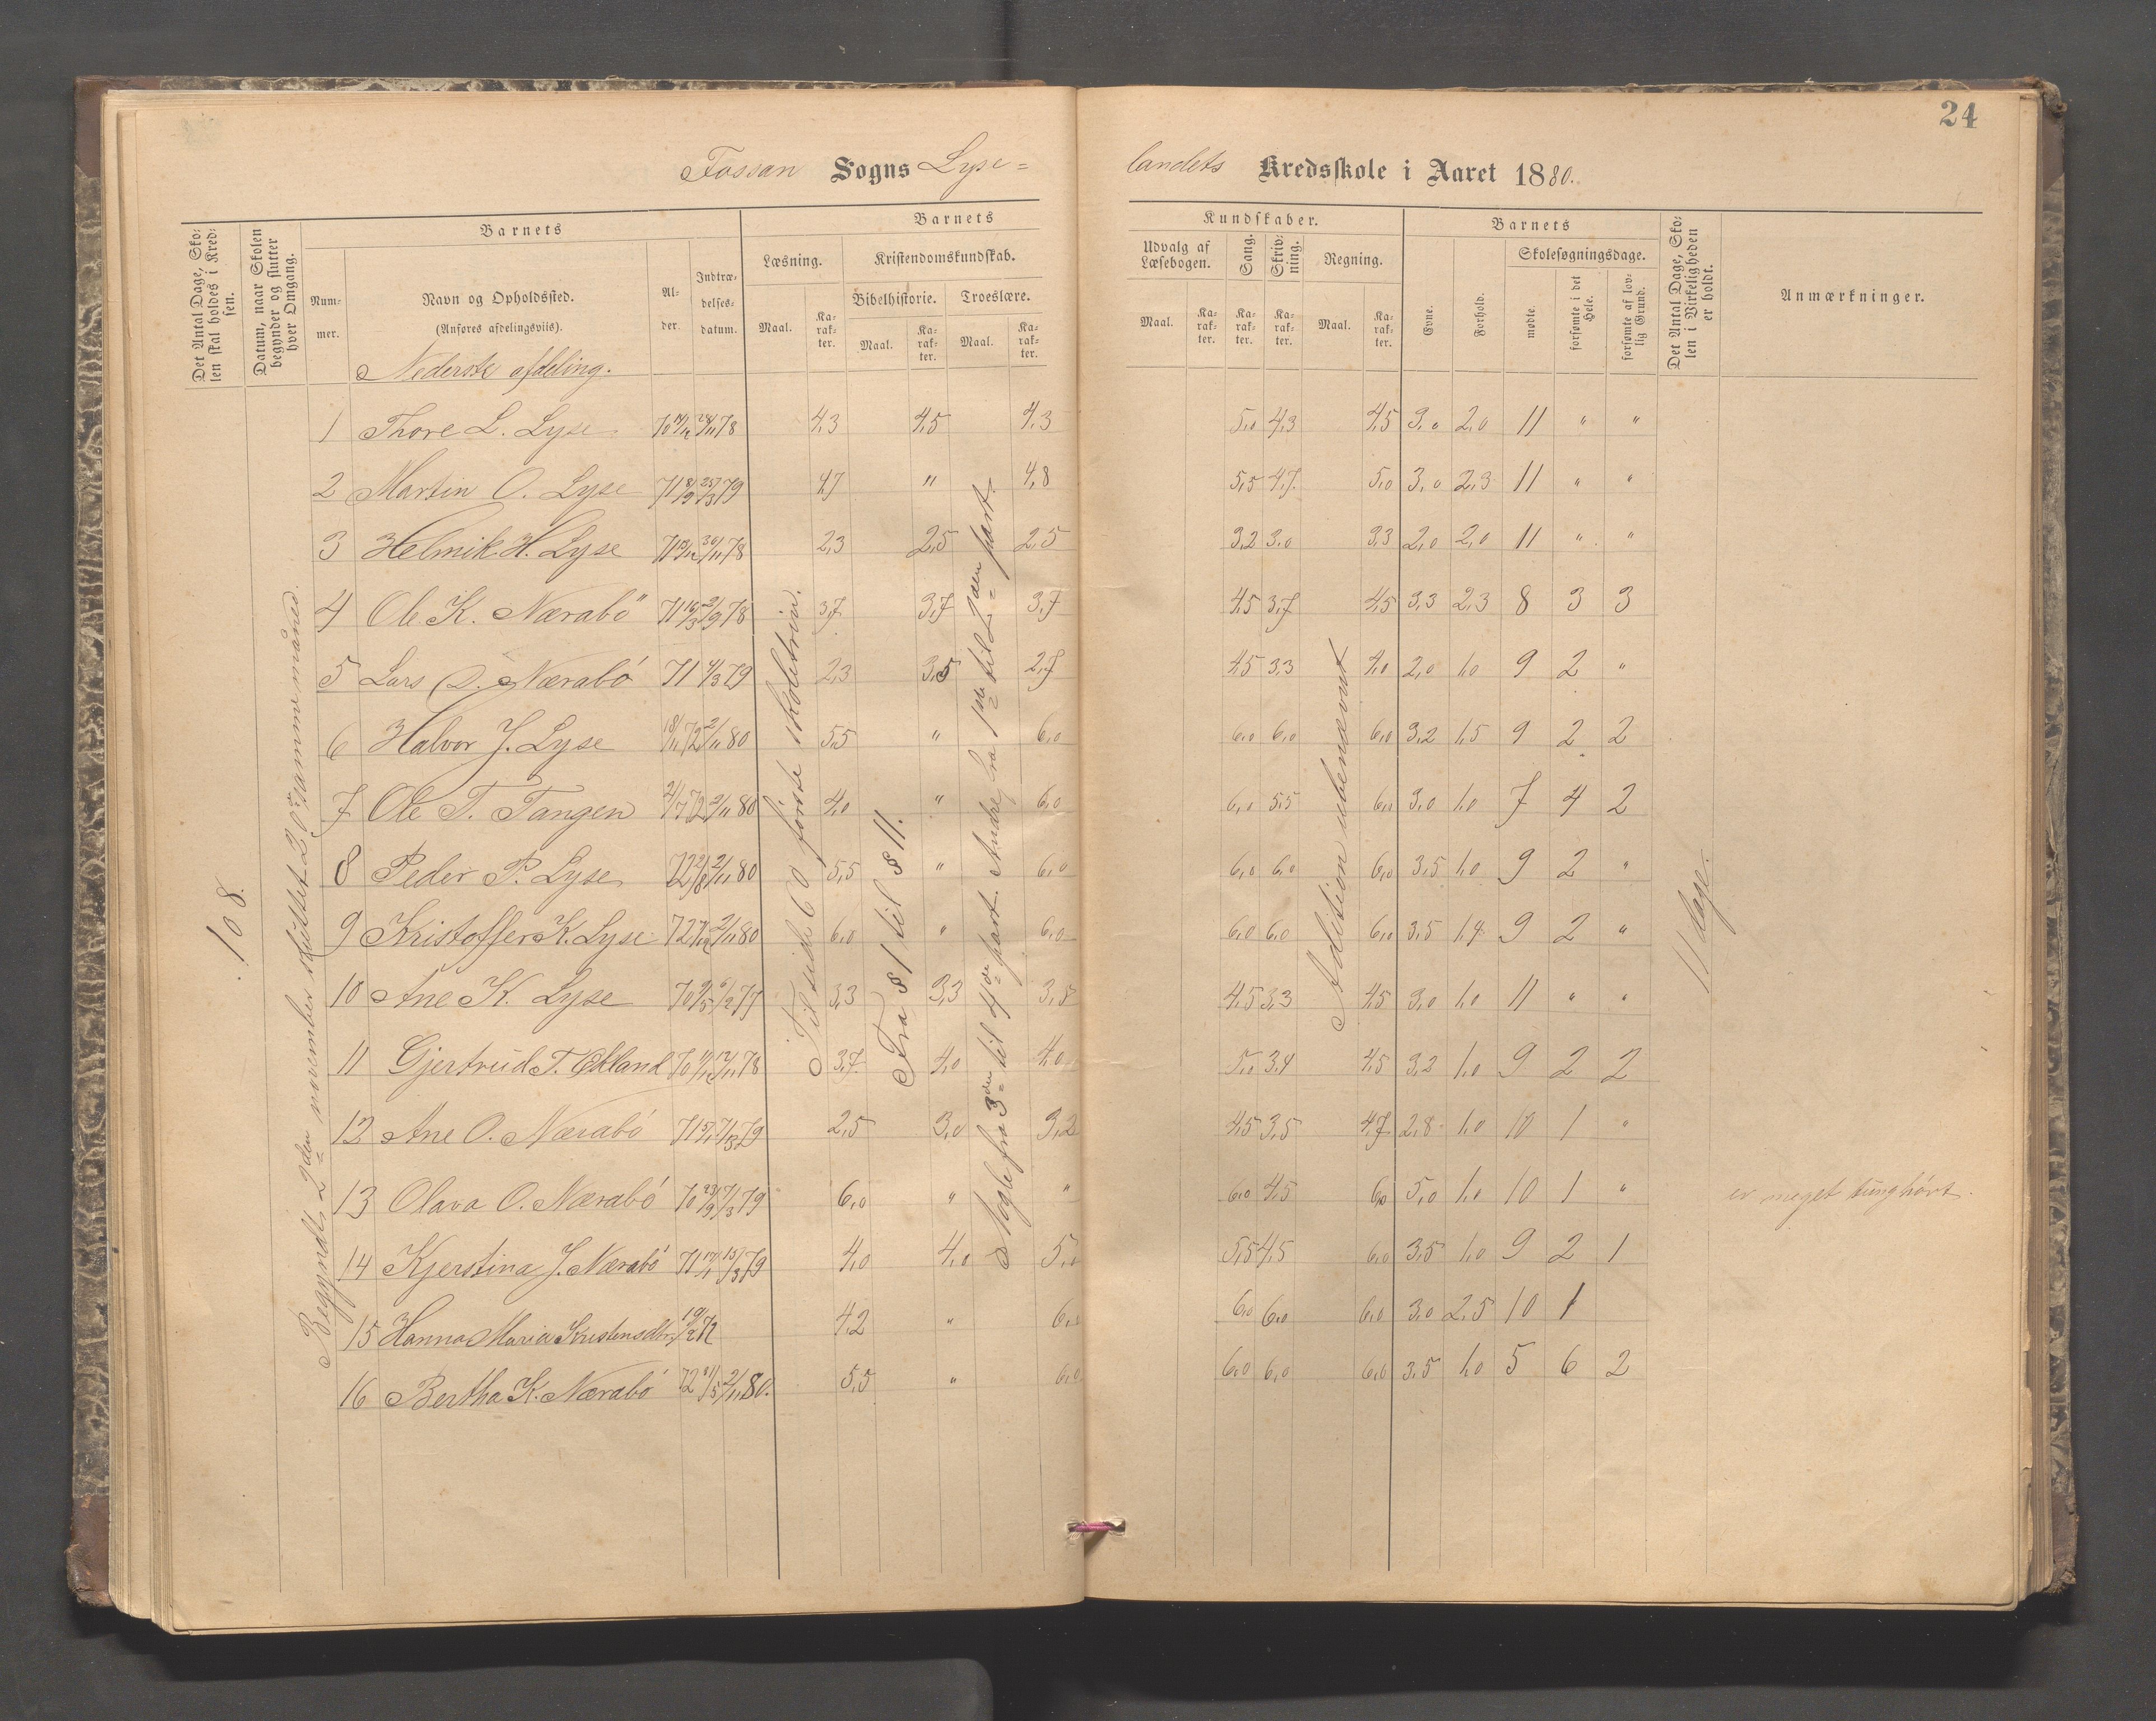 24
Fossan Sogns Lyse= landets Kredsskole i Aaret 1880.
Det Antal Dage, Skolen skal holdes i Kredsen.
Datum, naar Skolen begynder og slutter hver Omgang.
Barnets
Nummer.
Navn og Opholdssted.
(Anføres afdelingsviis).
Alder.
Indtrædelsesdatum.
Barnets Kundskaber.
Læsning.
Maal.
Karakter.
Kristendomskundskab.
Bibelhistorie.
Maal.
Karakter.
Troeslære.
Maal.
Karakter.
Udvalg af Læsebogen.
Maal.
Karakter.
Sang.
Karakter.
Skrivning.
Karakter.
Regning.
Maal.
Karakter.
Barnets
Evne.
Forhold.
Skolesøgningsdage.
mødte.
forsømte i det Hele.
forsømte af lovlig Grund.
Det Antal Dage, Skolen i Virkeligheden er holdt.
Anmærkninger.
Nederste afdeling.
108.
Begyndt 2den november sluttet 20de samme måned.
Til side 60 første skoletrin.
Fra § 1 til § 11.
Nogle fra 3die til 4de part. Andre fra 1ste til 2den part.
Adition ubenævnt
11 dage.
1 Thore L. Lyse 4,3 4,5 4,3 5,0 4,3 4,5 3,0 2,0 11 " "
2 Martin O. Lyse 71 8/9 25/3 79 4,7 " 4,8 5,5 4,7 5,0 3,0 2,3 11 " "
3 Helmik H. Lyse 2,3 2,5 2,5 3,2 3,0 3,3 2,0 2,0 11 " "
4 Ole K. Nærabø 71 16/3 2/9 78 3,7 3,7 3,7 4,5 3,7 4,5 3,3 2,3 8 3 3
5 Lars O. Nærabö 71 4/3 79 2,3 3,5 2,7 4,5 3,3 4,0 2,0 1,0 9 2 "
6 Halvor J. Lyse 18/11 72 2/11 80 5,5 " 6,0 6,0 6,0 6,0 3,2 1,5 9 2 2
7 Ole T. Tangen 2/7 72 2/11 80 4,0 " 6,0 6,0 5,5 6,0 3,0 1,0 7 4 2
8 Peder P. Lyse 72 2/8 2/11 80 5,5 " 6,0 6,0 6,0 6,0 3,5 1,0 9 2 "
9 Kristoffer K. Lyse 72 2/11 80 6,0 " 6,0 6,0 6,0 6,0 3,5 1,4 9 2 "
10 Ane K. Lyse 3,3 3,3 3,5 4,5 3,3 4,5 3,0 1,0 11 " "
11 Gjertrud T. 3,7 4,0 4,0 5,0 3,4 4,5 3,2 1,0 9 2 2
12 Ane O. Nærabö 2,5 3,0 3,2 4,5 3,5 4,7 2,8 1,0 10 1 "
13 Olava O. Nærabö 70 23/9 7/3 79 6,0 " " 6,0 4,5 6,0 5,0 1,0 10 1 " er meget tunghört.
14 Kjerstina J. Nærabö 71 17/1 15/3 79 4,0 4,0 5,0 5,5 4,5 6,0 3,5 1,0 9 2 1
15 Hanna Maria Kristensdtr. 19/2 72 4,2 " 6,0 6,0 6,0 6,0 3,0 2,5 10 1
16 Bertha K. Nærabö 72 31/5 2/11 80. 5,5 " 6,0 6,0 6,0 6,0 3,5 1,0 5 6 2